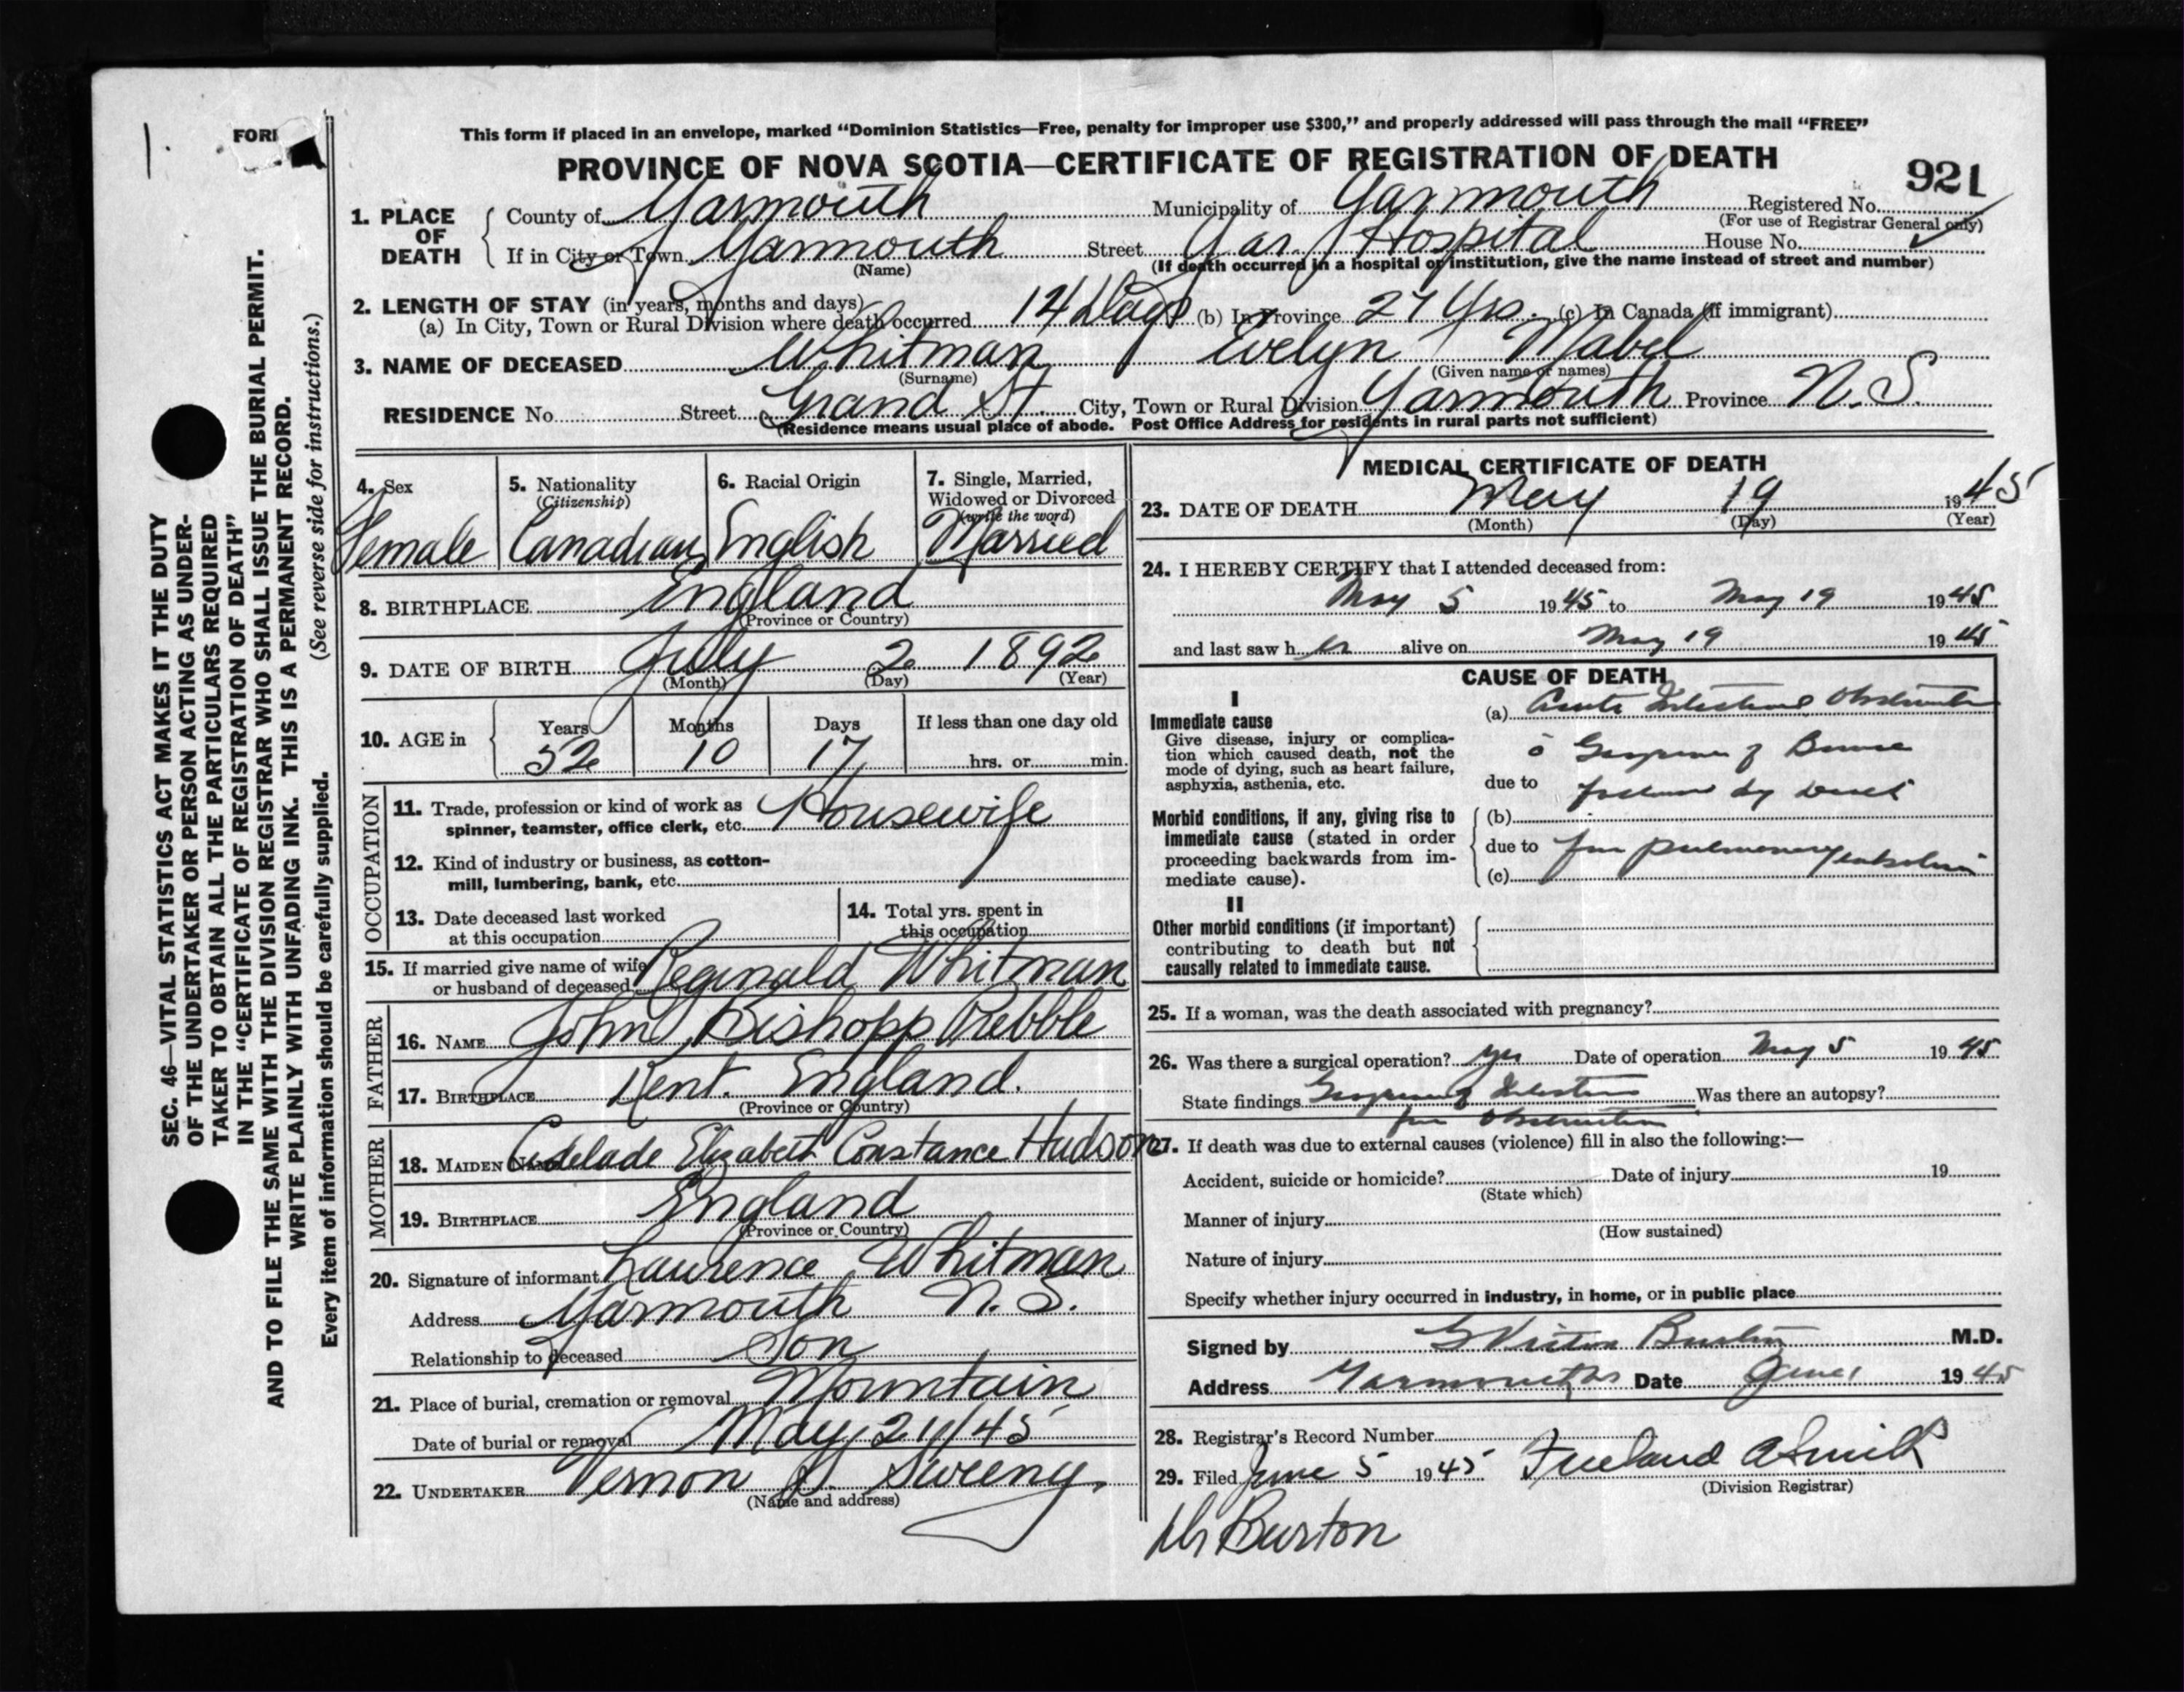 FORM
This form if placed in an envelope, marked "Dominion Statistics—Free, penalty for improper use $300," and properly addressed will pass through the mail "FREE"
PROVINCE OF NOVA SCOTIA—CERTIFICATE OF REGISTRATION OF DEATH
921
1. PLACE OF DEATH
County of Yarmouth Municipality of Yarmouth Registered No.
(For use of Registrar General only)
If in City or Town Yarmouth Street Yar. Hospital House No.
(Name) (If death occurred in a hospital or institution, give the name instead of street and number)
2. LENGTH OF STAY (in years, months and days)
(a) In City, Town or Rural Division where death occurred 14 Days (b) In Province 27 Yrs. (c) In Canada (if immigrant)
3. NAME OF DECEASED Whitman Evelyn Mabel
(Surname) (Given name or names)
RESIDENCE No. Street Grand St. City, Town or Rural Division Yarmouth Province N.S.
(Residence means usual place of abode. Post Office Address for residents in rural parts not sufficient)
4. Sex 5. Nationality (Citizenship) 6. Racial Origin 7. Single, Married, Widowed or Divorced (write the word)
Female Canadian English Married
8. BIRTHPLACE England
(Province or Country)
9. DATE OF BIRTH July 2 1892
(Month) (Day) (Year)
10. AGE in Years Months Days If less than one day old
52 10 17 hrs. or min.
OCCUPATION
11. Trade, profession or kind of work as spinner, teamster, office clerk, etc. Housewife
12. Kind of industry or business, as cotton-mill, lumbering, bank, etc.
13. Date deceased last worked at this occupation
14. Total yrs. spent in this occupation
15. If married give name of wife or husband of deceased Reginald Whitman
FATHER
16. NAME John Bishopp Prebble
17. BIRTHPLACE Kent. England.
(Province or Country)
MOTHER
18. MAIDEN NAME Adelade Elizabeth Constance Hudson
19. BIRTHPLACE England
(Province or Country)
20. Signature of informant Laurence Whitman
Address Yarmouth N.S.
Relationship to deceased Son
21. Place of burial, cremation or removal Mountain
Date of burial or removal May 21/45
22. UNDERTAKER Vernon Sweeny
(Name and address)
MEDICAL CERTIFICATE OF DEATH
23. DATE OF DEATH May 19 1945
(Month) (Day) (Year)
24. I HEREBY CERTIFY that I attended deceased from:
May 5 1945 to May 19 1945
and last saw her alive on May 19 1945
CAUSE OF DEATH
I
Immediate cause
Give disease, injury or complication which caused death, not the mode of dying, such as heart failure, asphyxia, asthenia, etc.
(a) Acute Intestinal Obstruction
due to
Morbid conditions, if any, giving rise to immediate cause (stated in order proceeding backwards from immediate cause).
(b)
due to
(c) pulmonary embolism
II
Other morbid conditions (if important) contributing to death but not causally related to immediate cause.
25. If a woman, was the death associated with pregnancy?
26. Was there a surgical operation? yes Date of operation May 5 1945
State findings Was there an autopsy?
Obstruction
27. If death was due to external causes (violence) fill in also the following:—
Accident, suicide or homicide? Date of injury 19
(State which)
Manner of injury
(How sustained)
Nature of injury
Specify whether injury occurred in industry, in home, or in public place
Signed by G Victor Burton M.D.
Address Yarmouth NS Date June 1 1945
28. Registrar's Record Number
29. Filed June 5 1945 Freeland A Smith
(Division Registrar)
Dr Burton
SEC. 46—VITAL STATISTICS ACT MAKES IT THE DUTY
OF THE UNDERTAKER OR PERSON ACTING AS UNDER-
TAKER TO OBTAIN ALL THE PARTICULARS REQUIRED
IN THE "CERTIFICATE OF REGISTRATION OF DEATH"
AND TO FILE THE SAME WITH THE DIVISION REGISTRAR WHO SHALL ISSUE THE BURIAL PERMIT.
WRITE PLAINLY WITH UNFADING INK. THIS IS A PERMANENT RECORD.
Every item of information should be carefully supplied. (See reverse side for instructions.)